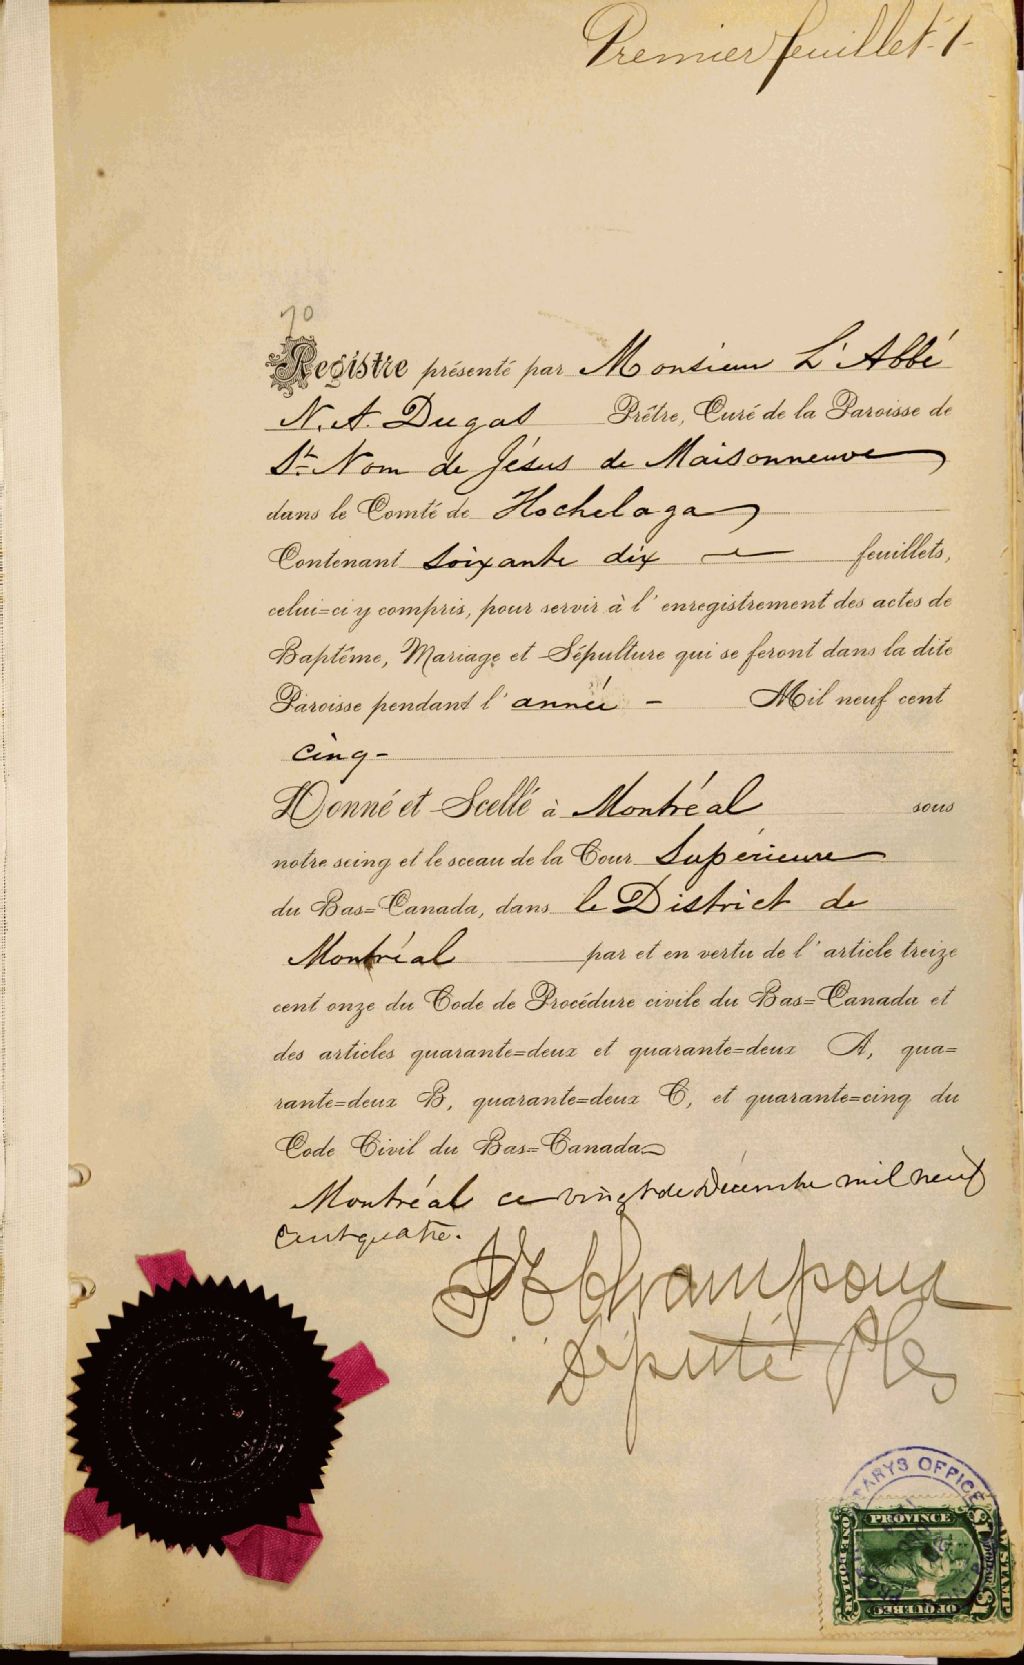 Premier feuillet - 1 -
70
Registre présenté par Monsieur L'Abbé
N. A. Dugas Prêtre, Curé de la Paroisse de
St Nom de Jésus de Maisonneuve
dans le Comté de Hochelaga
Contenant soixante dix feuillets,
celui=ci y compris, pour servir à l'enregistrement des actes de
Baptême, Mariage et Sépulture qui se feront dans la dite
Paroisse pendant l'année - Mil neuf cent
cinq -
Donné et Scellé à Montréal sous
notre seing et le sceau de la Cour Supérieure
du Bas=Canada, dans le District de
Montréal par et en vertu de l'article treize
cent onze du Code de Procédure civile du Bas=Canada et
des articles quarante=deux et quarante=deux A, qua=
rante=deux B, quarante=deux C, et quarante=cinq du
Code Civil du Bas=Canada
Montréal ce vingt de Décembre mil neuf
cent quatre.
Député
OFFICE
PROVINCE
OF QUEBEC
ONE DOLLAR